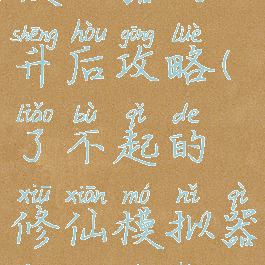 shēng hòu gōng lüè
升后攻略(
liǎo bù qǐ de
了不起的
xiū xiān mó nǐ qì
修仙模拟器